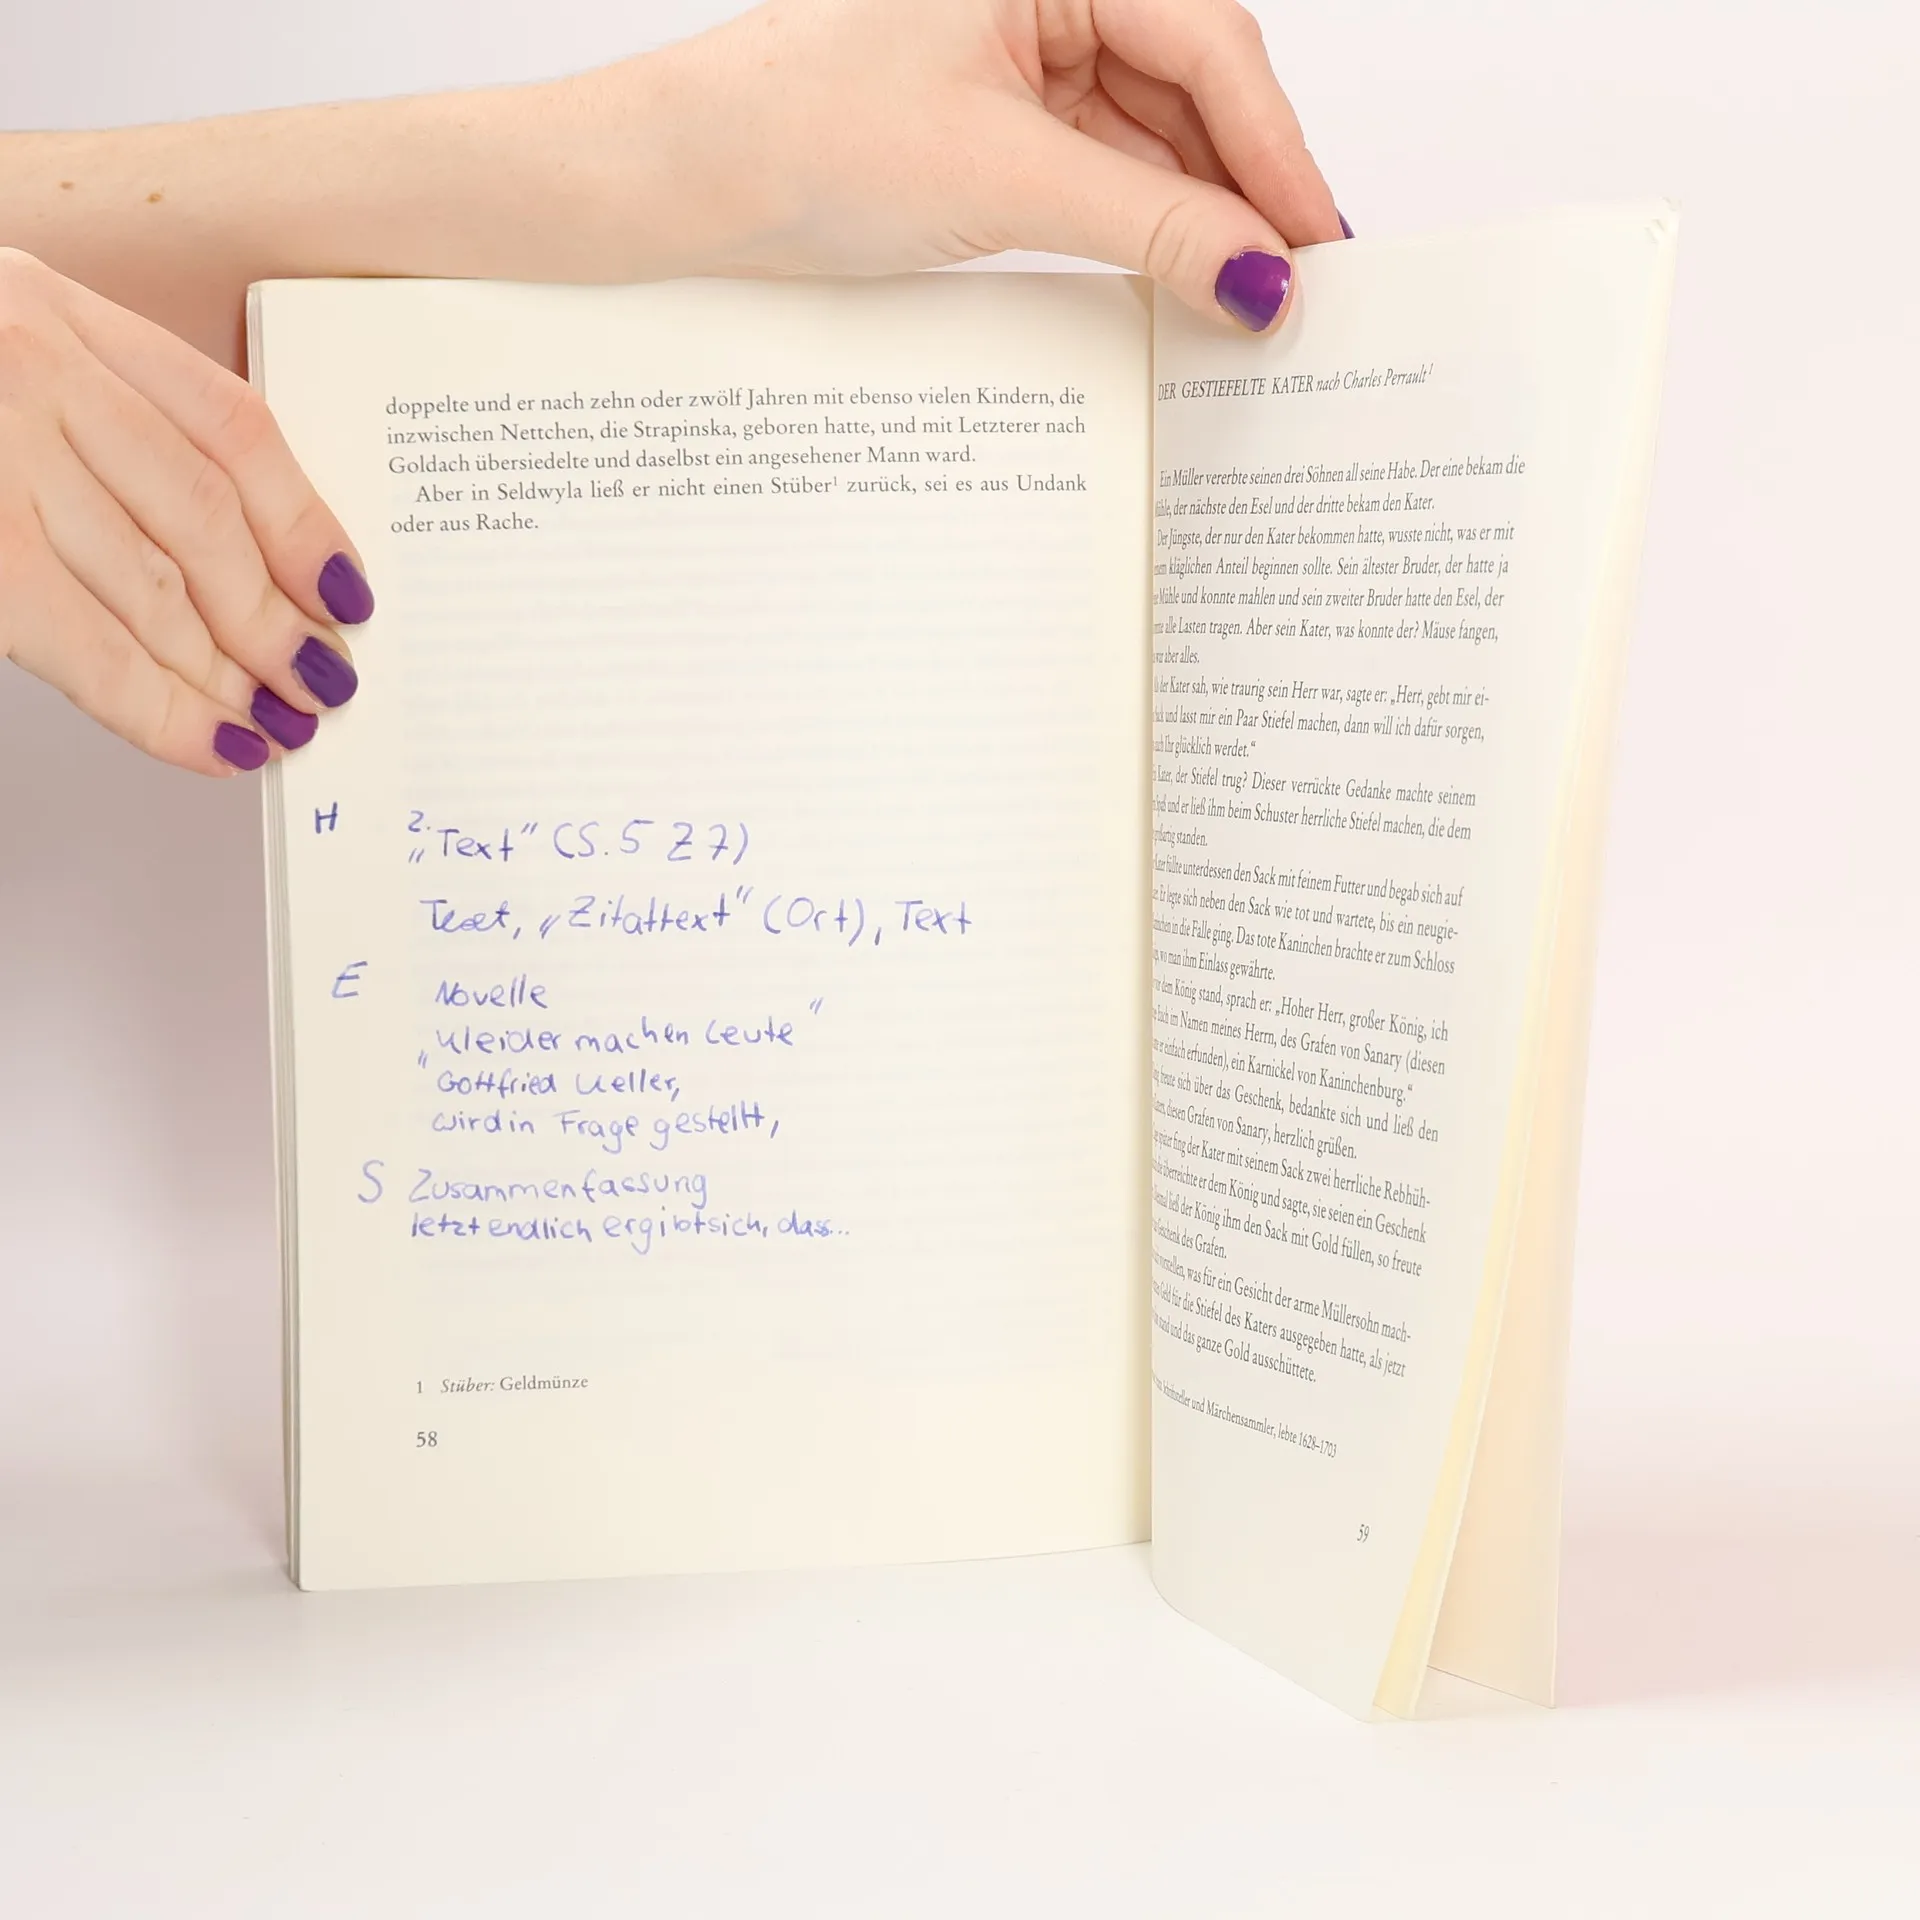 doppelte und er nach zehn oder zwölf Jahren mit ebenso vielen Kindern, die
inzwischen Nettchen, die Strapinska, geboren hatte, und mit Letzterer nach
Goldach übersiedelte und daselbst ein angesehener Mann ward.
Aber in Seldwyla ließ er nicht einen Stüber¹ zurück, sei es aus Undank
oder aus Rache.
H 2.
„Text" (S. 5 Z 7)
Text, „Zitattext" (Ort), Text
E Novelle
„Kleider machen Leute"
Gottfried Keller,
wird in Frage gestellt,
S Zusammenfassung
letztendlich ergibt sich, dass...
1 Stüber: Geldmünze
58
DER GESTIEFELTE KATER nach Charles Perrault¹
Ein Müller vererbte seinen drei Söhnen all seine Habe. Der eine bekam die
der nächste den Esel und der dritte bekam den Kater.
Der Jüngste, der nur den Kater bekommen hatte, wusste nicht, was er mit
kläglichen Anteil beginnen sollte. Sein ältester Bruder, der hatte ja
Mühle und konnte mahlen und sein zweiter Bruder hatte den Esel, der
alle Lasten tragen. Aber sein Kater, was konnte der? Mäuse fangen,
aber alles.
der Kater sah, wie traurig sein Herr war, sagte er: „Herr, gebt mir ei-
und lasst mir ein Paar Stiefel machen, dann will ich dafür sorgen,
Ihr glücklich werdet."
Kater, der Stiefel trug? Dieser verrückte Gedanke machte seinem
und er ließ ihm beim Schuster herrliche Stiefel machen, die dem
standen.
Kater füllte unterdessen den Sack mit feinem Futter und begab sich auf
Er legte sich neben den Sack wie tot und wartete, bis ein neugie-
in die Falle ging. Das tote Kaninchen brachte er zum Schloss
wo man ihm Einlass gewährte.
dem König stand, sprach er: „Hoher Herr, großer König, ich
Euch im Namen meines Herrn, des Grafen von Sanary (diesen
er einfach erfunden), ein Karnickel von Kaninchenburg."
freute sich über das Geschenk, bedankte sich und ließ den
diesen Grafen von Sanary, herzlich grüßen.
später fing der Kater mit seinem Sack zwei herrliche Rebhüh-
überreichte er dem König und sagte, sie seien ein Geschenk
ließ der König ihm den Sack mit Gold füllen, so freute
Geschenk des Grafen.
vorstellen, was für ein Gesicht der arme Müllersohn mach-
Geld für die Stiefel des Katers ausgegeben hatte, als jetzt
stand und das ganze Gold ausschüttete.
Schriftsteller und Märchensammler, lebte 1628–1703
59